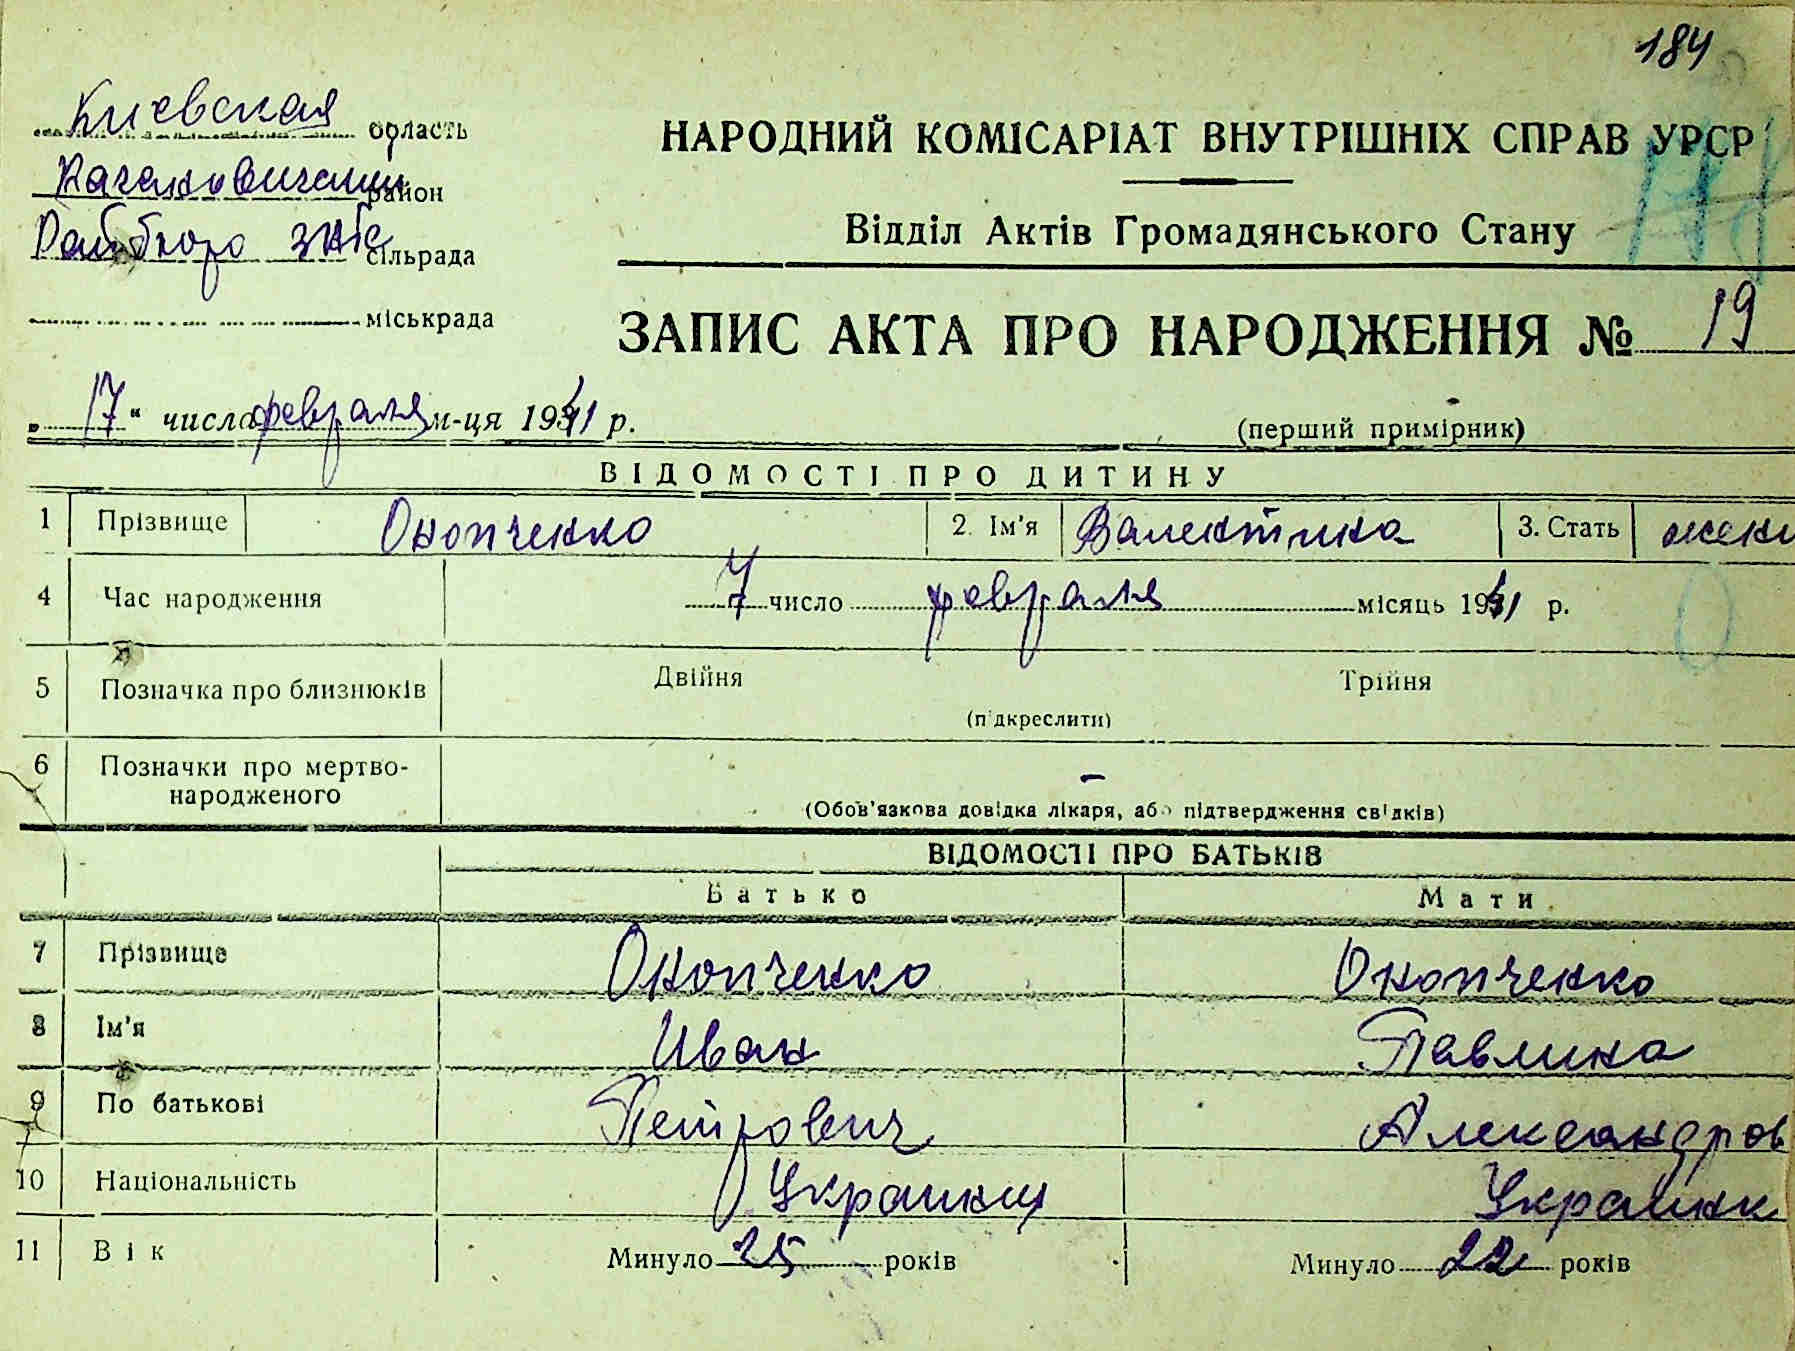 184
Киевская область
Кагановичский район
Райбюро загс сільрада
міськрада
НАРОДНИЙ КОМІСАРІАТ ВНУТРІШНІХ СПРАВ УРСР
Відділ Актів Громадянського Стану
ЗАПИС АКТА ПРО НАРОДЖЕННЯ № 19
„17“ числа февраля м-ця 1941 р.
(перший примірник)
ВІДОМОСТІ ПРО ДИТИНУ
1 Прізвище Онопченко 2. Ім'я Валентина 3. Стать женс
4 Час народження 7 число февраля місяць 1941 р.
5 Позначка про близнюків Двійня Трійня
(підкреслити)
6 Позначки про мертво-
народженого
(Обов'язкова довідка лікаря, або підтвердження свідків)
ВІДОМОСТІ ПРО БАТЬКІВ
Батько Мати
7 Прізвище Онопченко Онопченко
8 Ім'я Иван Павлина
9 По батькові Петрович Александров
10 Національність Украинец Украинк
11 Вік Минуло 25 років Минуло 22 років